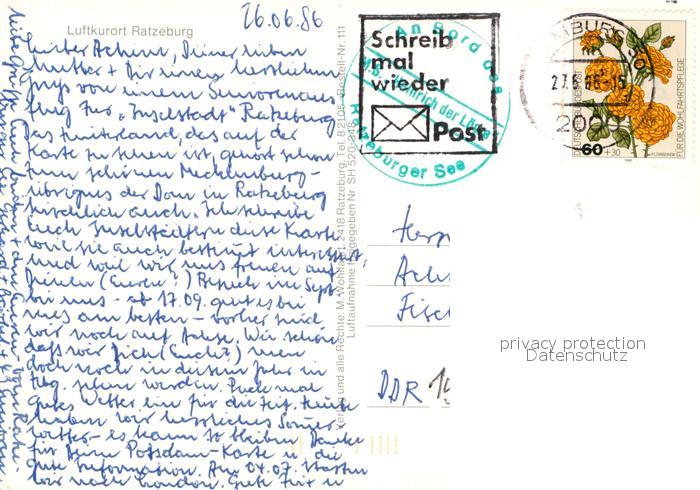 26.06.86
Luftkurort Ratzeburg
Lieber Achim, Deiner lieben
Mutter + Dir einen herzlichen
Gruß von einem Seniorenaus-
flug zur „Inselstadt" Ratzeburg
Das Hinterland, das auf der
Karte zu sehen ist, gehört schon
zum schönen Mecklenburg-
übrigens der Dom in Ratzeburg
kirchlich auch. Ich schreibe
Euch Inselstädtern diese Karte
weil sie auch bestimmt interessiert,
und weil wir uns freuen auf
Deinen (Euren?) Besuch im Sept.
bei uns - ab 17.09. geht es bei
uns am besten - vorher sind
wir noch auf Achse. Wie schön
daß wir Dich (Euch?) nun
doch noch in diesem Jahr in
Hbg. sehen werden. Euch mal
gutes Wetter für die Zeit. Heute
haben wir herrliches Sommer-
wetter - es kann so bleiben. Danke
für Deine Potsdam-Karte + die
gute Information. Am 04.07. starten
wir nach London. Gute Zeit
Verlag und alle Rechte: M. Wohlfahrt, 2418 Ratzeburg, Tel. 82105 Bestell-Nr. 111
Luftaufnahme freigegeben Nr. SH 520
Schreib
mal
wieder
Post
An Bord des
MS Heinrich der Löwe
Ratzeburger See
HAMBURG
27.6.86-15
200
DEUTSCHE BUNDESPOST
FÜR DIE WOHLFAHRTSPFLEGE
60 +30
FLORIBUNDA
1982
Herrn
Ach
Fisc
DDR 15
privacy protection
Datenschutz